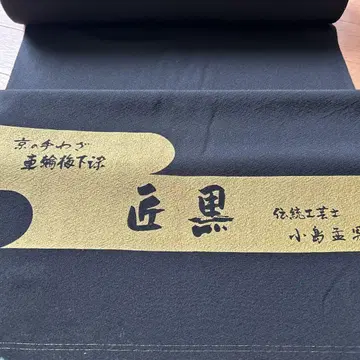 京の手わざ
車輪梅下染
匠黒
伝統工芸士
小島